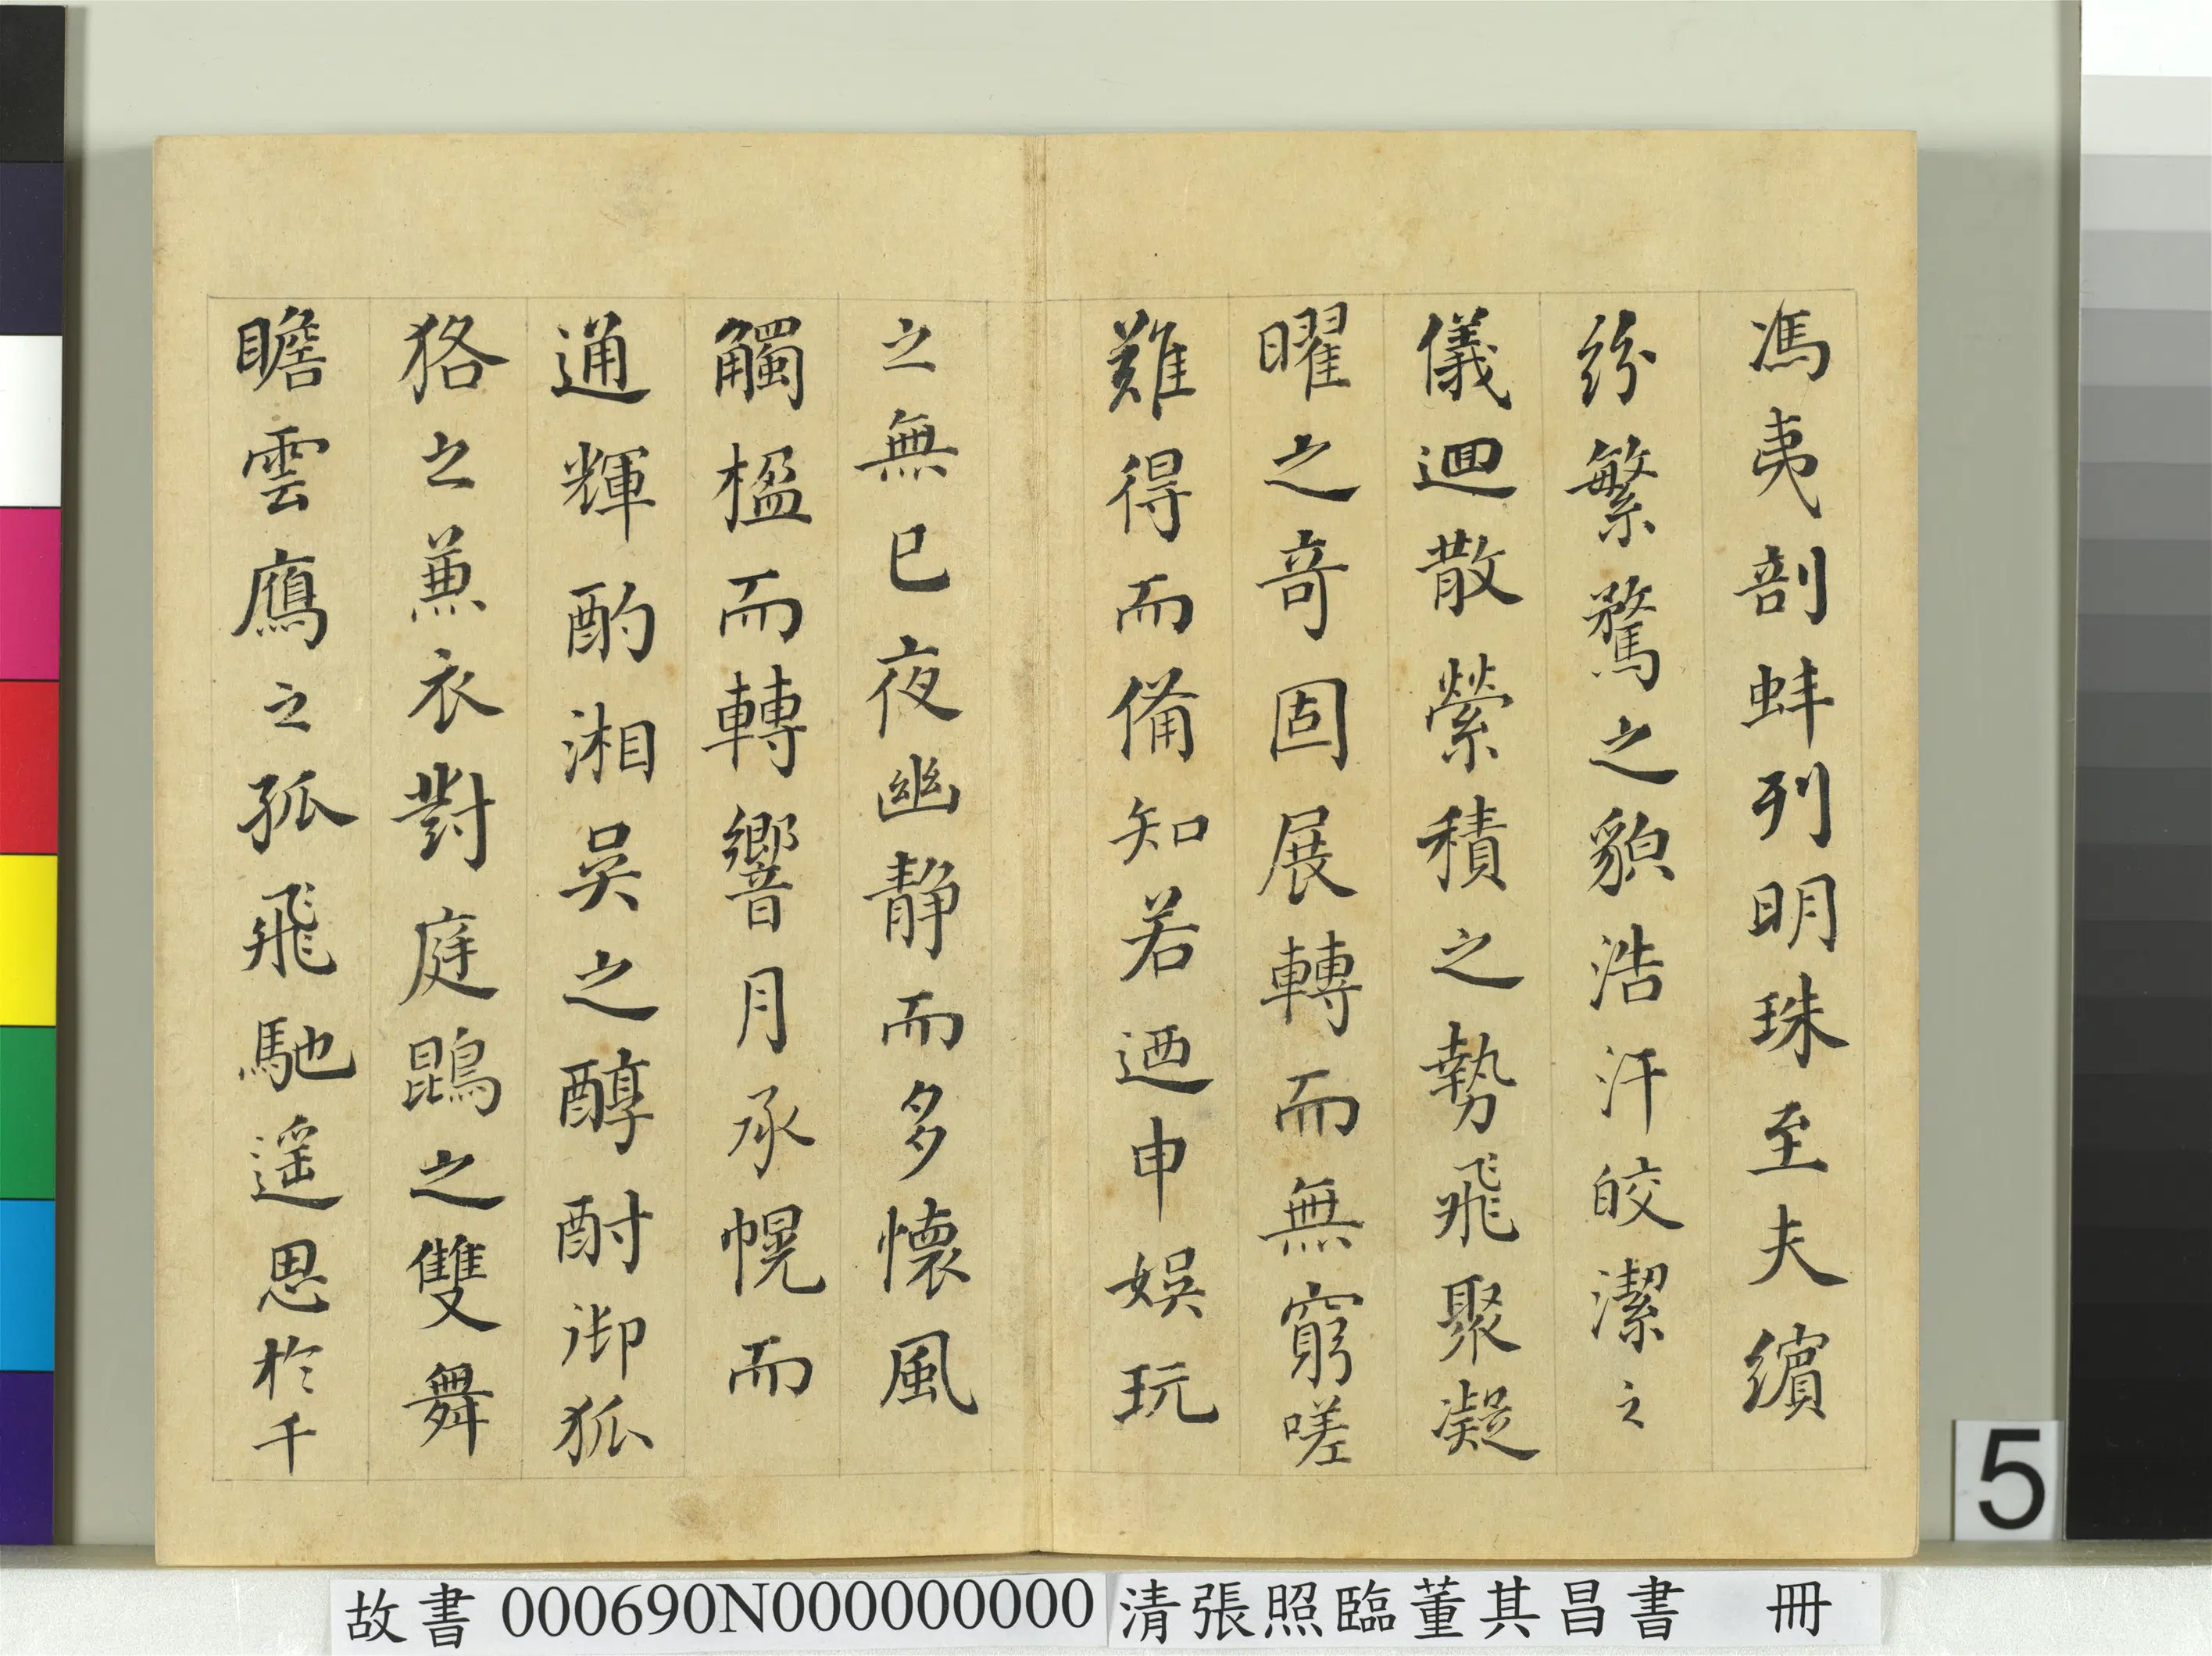 馮夷剖蚌列明珠至夫繽
紛繁騖之貌浩汗皎潔之
儀迴散縈積之勢飛聚凝
曜之奇固展轉而無窮嗟
難得而備知若迺申娛玩
之無已夜幽靜而多懷風
觸楹而轉響月承幌而
通輝酌湘吳之醇酎御狐
狢之兼衣對庭鵾之雙舞
瞻雲鴈之孤飛馳遥思於千
5
故書 000690N000000000 清張照臨董其昌書 冊